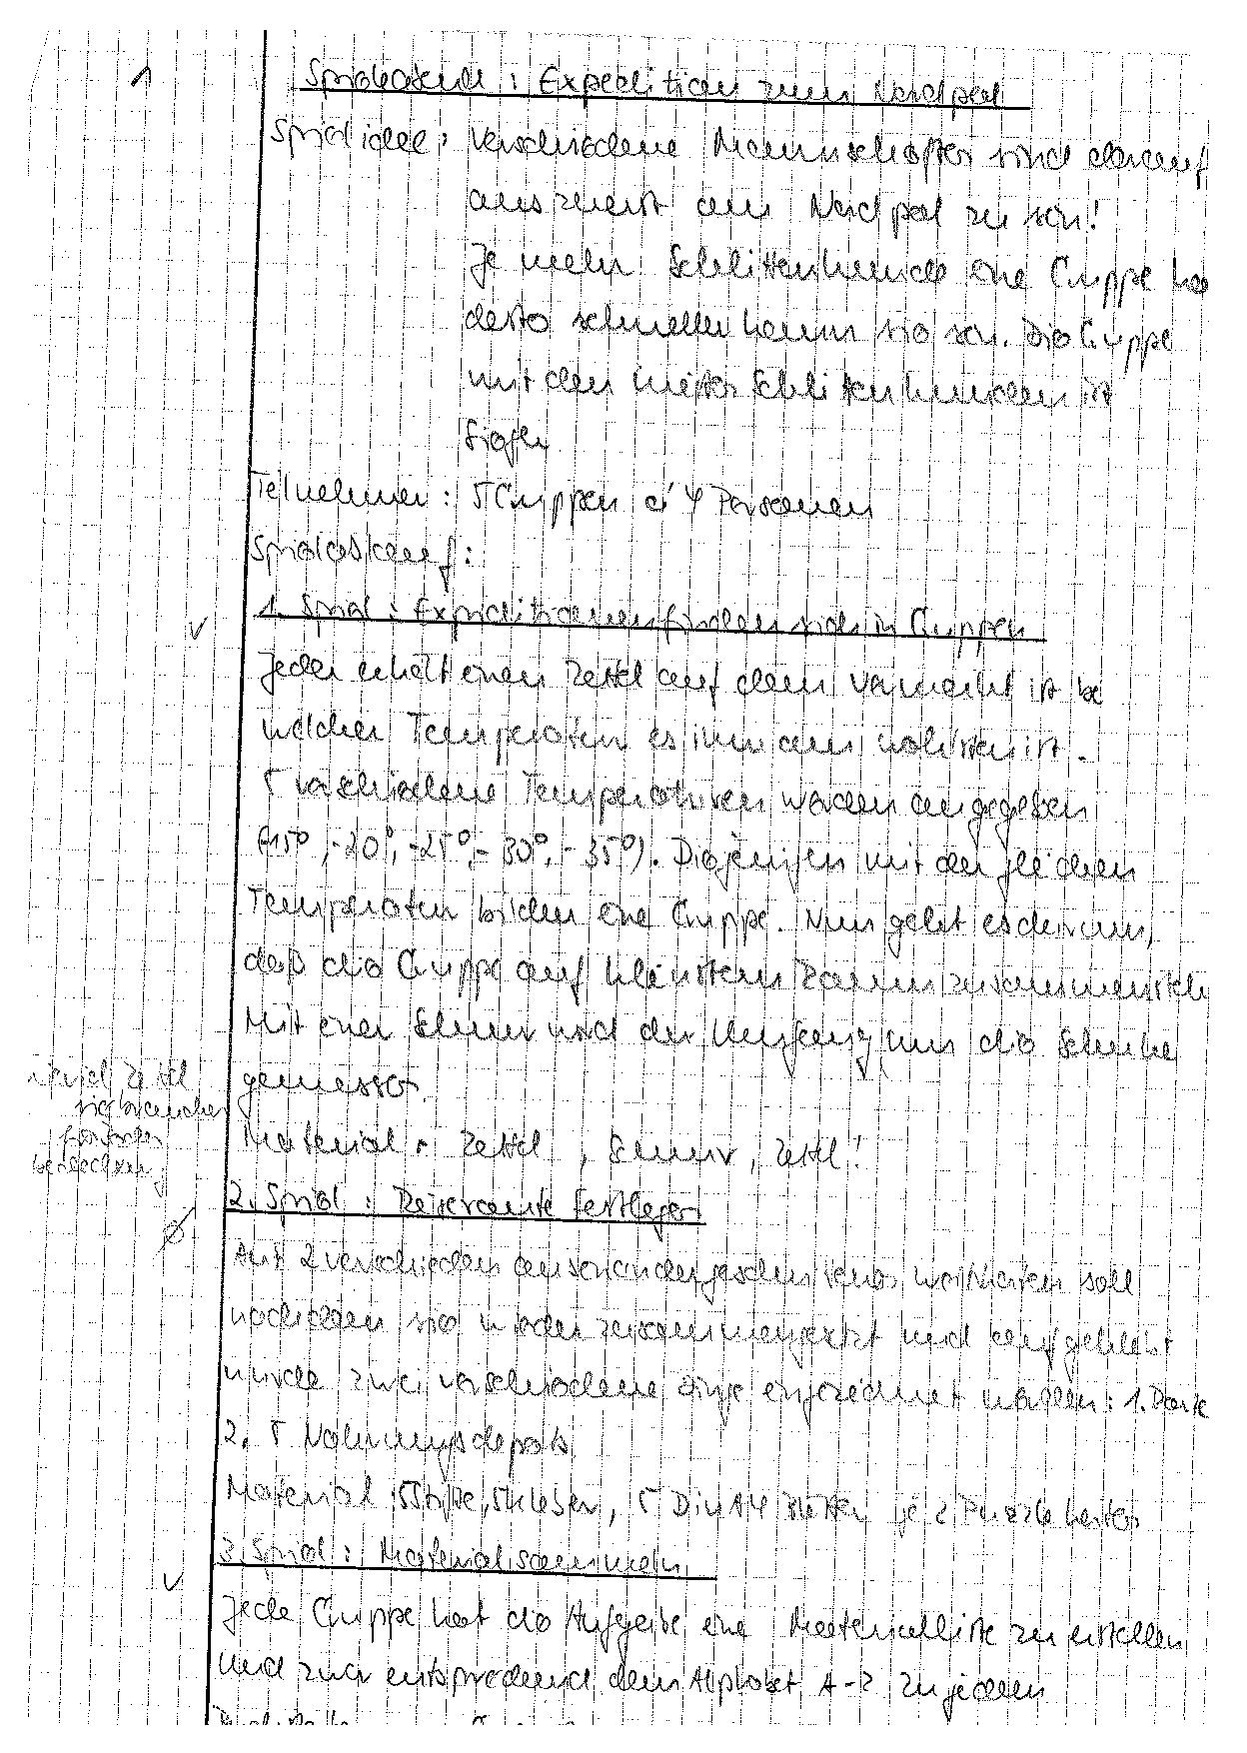 1
Spieleabend : Expedition zum Nordpol
Spielidee : Verschiedene Mannschaften sind darauf
aus zuerst am Nordpol zu sein!
Je mehr Schlittenhunde eine Gruppe ha
desto schneller kann sie sein. Die Gruppe
mit den meisten Schlittenhunden ist
Sieger
Teilnehmer : 5 Gruppen á 4 Personen
Spielablauf :
1. Spiel : Expeditionen finden sich in Gruppen
Jeder erhält einen Zettel auf dem vermerkt ist be
welcher Temperatur es ihm am wohlsten ist.
5 verschiedene Temperaturen werden angegeben
(-15°, -20°, -25°, -30°, -35°). Diejenigen mit der gleichen
Temperatur bilden eine Gruppe. Nun geht es darum,
daß die Gruppe auf kleinstem Raum zusammensteh
Mit einer Schnur wird der Umfang um die Schuhe
gemessen
Material : Zettel, Schnur, Zettel!
wieviel Zettel
sie brauchen
für jeden
2. Spiel : Reiseroute festlegen
Aus 2 verschiedenen auseinandergeschnittenen Weltkarten soll
nachdem sie wieder zusammengesetzt und aufgeklebt
wurde zwei verschiedene Dinge eingezeichnet werden : 1. Route
2. 5 Nahrungsdepots
Material : 5 Stifte, 5 Kleber, 5 Din A4 Blätter je 2 Puzzlekarten
3. Spiel : Material sammeln
Jede Gruppe hat die Aufgabe eine Materialliste zu erstellen
und zwar entsprechend dem Alphabet A-Z. Zu jedem